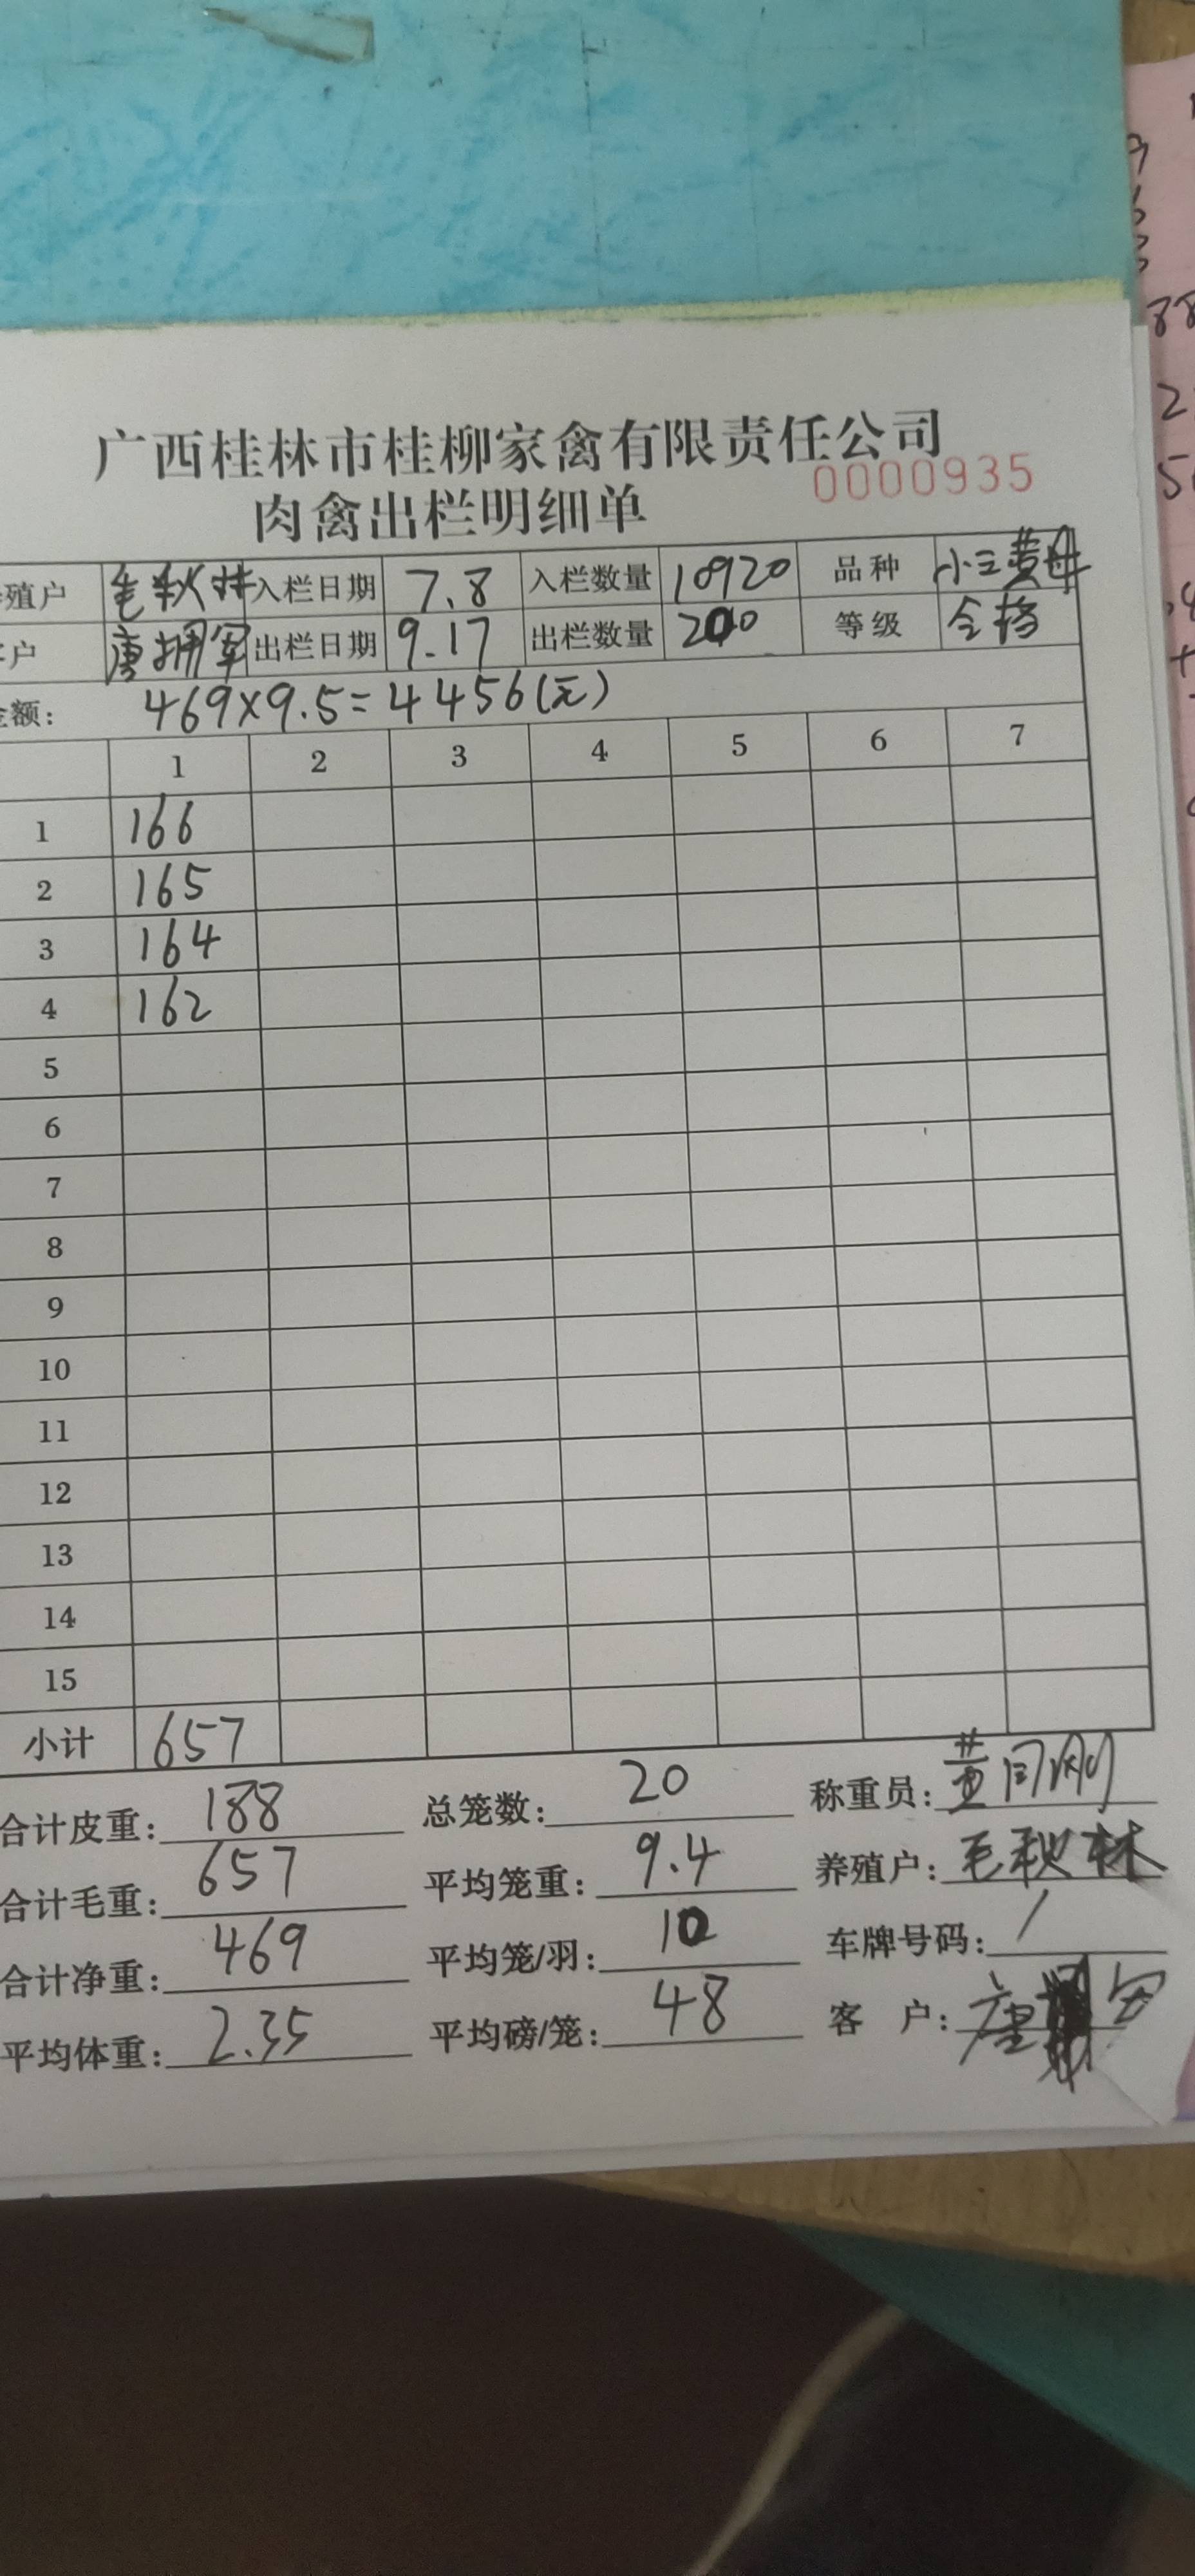 广西桂林市桂柳家禽有限责任公司
0000935
肉禽出栏明细单
殖户 毛秋林 入栏日期 7.8 入栏数量 10920 品种 小三黄母
户 唐拥军 出栏日期 9.17 出栏数量 200 等级 合格
额: 469×9.5=4456(元)
1 2 3 4 5 6 7
1 166
2 165
3 164
4 162
5
6
7
8
9
10
11
12
13
14
15
小计 657
合计皮重: 188 总笼数: 20 称重员:
合计毛重: 657 平均笼重: 9.4 养殖户: 毛秋林
合计净重: 469 平均笼/羽: 10 车牌号码: /
平均体重: 2.35 平均磅/笼: 48 客 户: 唐 军
88
2